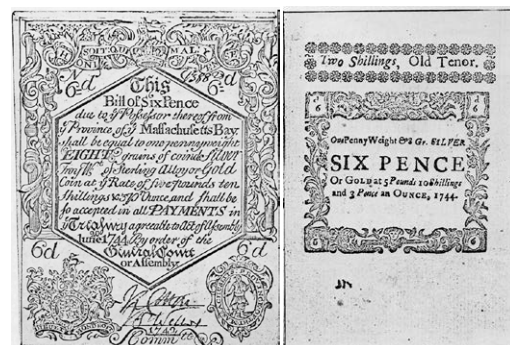 HONI SOIT QUI MAL Y
No
6d
2d
This
Bill of Six Pence
due to ye Possessor thereof from
ye Province of ye Massachusetts Bay
shall be equal to one pennyweight
EIGHT grains of coined Silver
of Sterling Alloy or Gold
Coin at ye Rate of five pounds ten
Shillings & 3d ⅌ Ounce, and shall be
so accepted in all PAYMENTS in
ye Treasury agreeable to Act of Assembly
June 1744 By order of the
General Court
or Assembly
6d
6d
1742
Committee
Two Shillings, Old Tenor.
One Penny Weight & 8 Gr. SILVER
SIX PENCE
Or GOLD at 5 Pounds 10 Shillings
and 3 Pence an OUNCE, 1744.